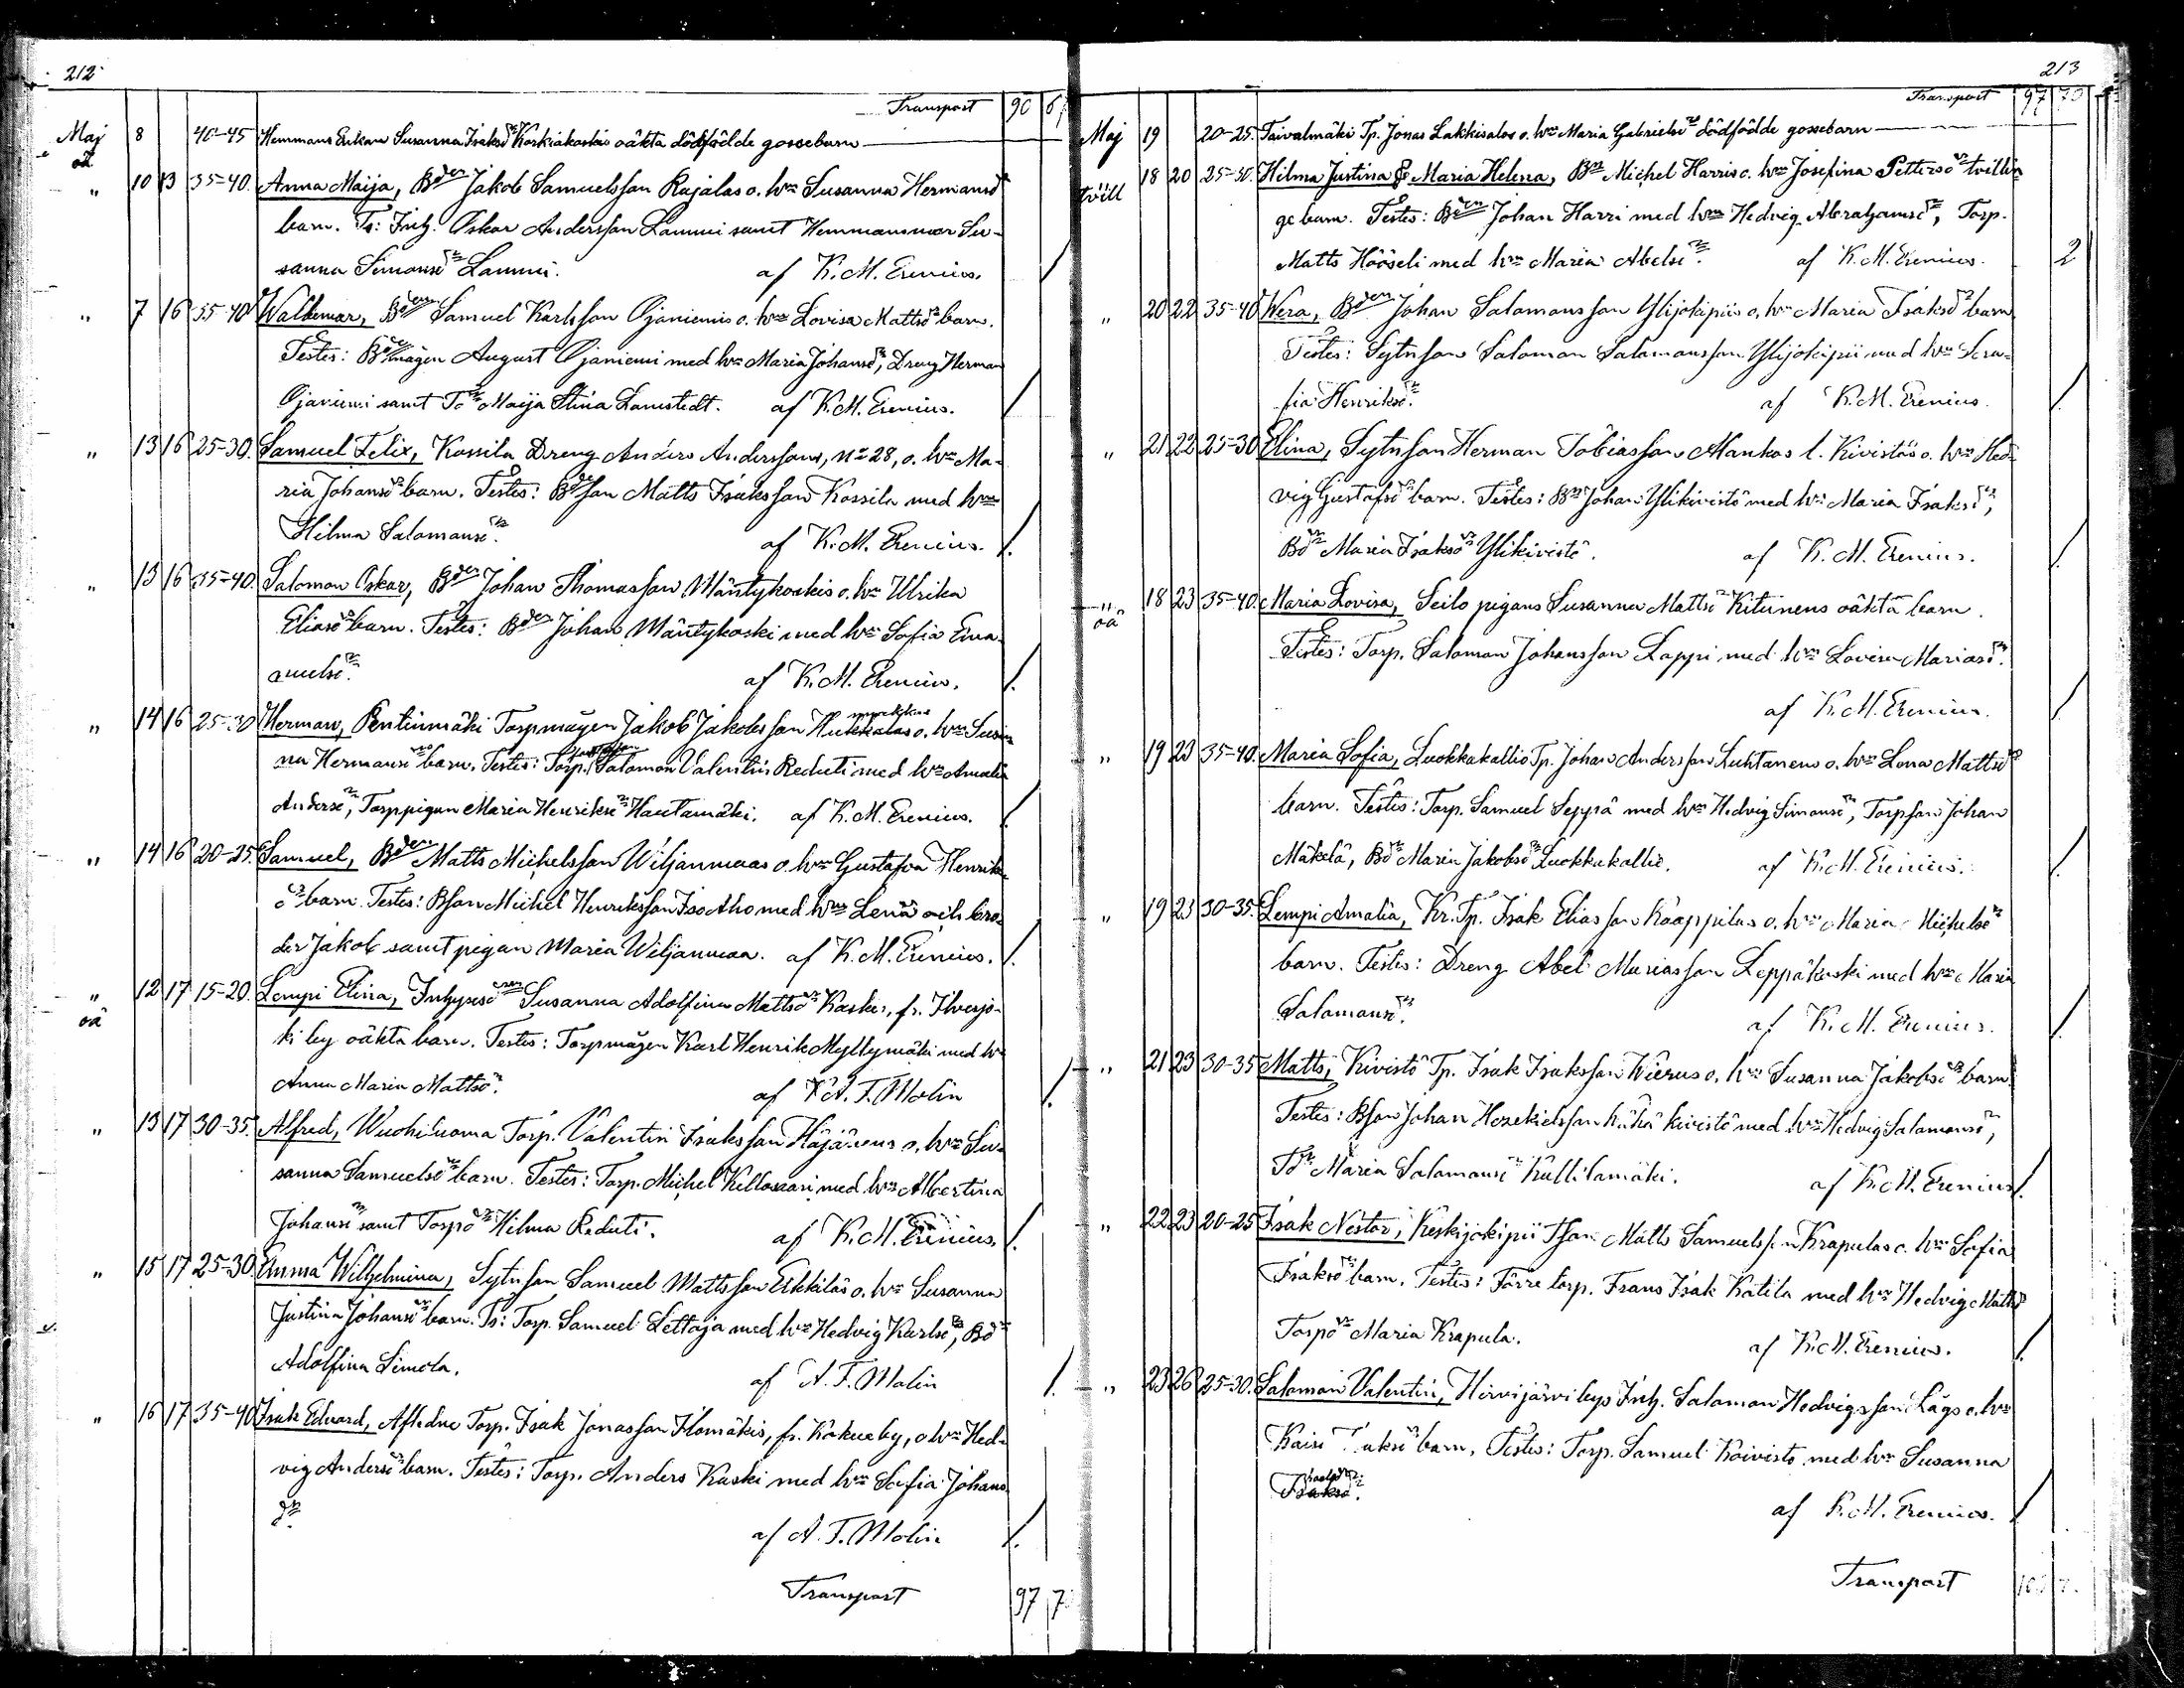 212
Transport 90 67
Maj 8 40-45 Hemmans Enkan Susanna Isaksdr Koskiakoskis oäkta dödfödde gossebarn
oä
" 10 13 35-40. Anna Maija, Bden Jakob Samuelsson Rajalas o. hrs Susanna Hermansdr
barn. Ts: Inh. Oskar Andersson Lammi samt Hemmansmor Su-
sanna Simonsdr Lammi. af K. M. Erenius. /
" 7 16 35-40 Waldemar, Bden Samuel Karlsson Ojaniemis o. hrs Lovisa Mattsdr barn.
Testes: Bdemågen August Ojaniemi med hrs Maria Johansdr, Dreng Herman
Ojaniemi samt Tdr Maija Stina Lamstedt. af K. M. Erenius. /
" 13 16 25-30. Samuel Felix, Kossila Dreng Anders Anderssons, No 28, o. hrs Ma-
ria Johansdr barn. Testes: Bdeson Matts Isaksson Kossila med hrs
Hilma Salomonsdr. af K. M. Erenius. /.
" 13 16 35-40. Salomon Oskar, Bden Johan Thomasson Mäntykoskis o. hrs Ulrika
Eliasdr barn. Testes: Bden Johan Mäntykoski med hrs Sofia Ema-
nuelsdr. af K. M. Erenius. /.
" 14 16 25-30 Herman, Pentinmäki Torpmågen Jakob Jakobsson Hukkalas o. hrs Susan
na Hermansdr barn. Testes: Torp. Salomon Valentin Reduti med hrs Amalia
Andersdr, Torppigan Maria Henriksdr Hautamäki. af K. M. Erenius. /
" 14 16 20-25. Samuel, Bden Matts Michelsson Wiljanmaas o. hrs Gustafva Henriks
dr barn. Testes: Bson Michel Henriksson Iso Aho med hrs Lena och bro-
der Jakob samt pigan Maria Wiljanmaa. af K. M. Erenius. /.
" 12 17 15-20. Lempi Elina, Inhysesdr Susanna Adolfina Mattsdr Kaskis, fr. Ilvesjo-
oä
ki by oäkta barn. Testes: Torpmågen Karl Henrik Myllymäki med hr
Anna Maria Mattsdr. af A. F. Molin /.
" 13 17 30-35. Alfred, Wuohiluoma Torp. Valentin Isaksson Häjänens o. hrs Su-
sanna Samuelsdr barn. Testes: Torp. Michel Kellosaari med hrs Albertina
Johansdr samt Torpdr Hilma Reduti. af K. M. Erenius. /.
" 15 17 25-30. Emma Wilhelmina, Sytnson Samuel Mattsson Erkkiläs o. hrs Susanna
Justina Johansdr barn. Ts: Torp. Samuel Lettaja med hrs Hedvig Karlsdr, Bdr
Adolfina Simola. af A. F. Molin /.
" 16 17 35-40 Isak Edvard, Afledne Torp. Isak Jonasson Ilomäkis, fr. Kokueby, o hrs Hed-
vig Andersdr barn. Testes: Torp. Anders Kaski med hrs Sofia Johans
dr. af A. F. Molin /.
Transport 97 7
213
Transport 97 70
Maj 19 20-25. Taivalmäki Tp. Jonas Lakkisalos o. hrs Maria Gabrielsdr dödfödde gossebarn
tvill 18 20 25-30. Hilma Justina & Maria Helena, Bn Michel Harris o. hrs Josefina Pettersdr tvillin
gebarn. Testes: Bden Johan Harri med hrs Hedvig Abrahamsdr, Torp.
Matts Höösli med hrs Maria Abelsdr. af K. M. Erenius. 2
" 20 22 35-40 Wera, Bden Johan Salomonsson Ylijokipiis o. hrs Maria Isaksdr barn
Testes: Sytnson Salomon Salomonsson Ylijokipii med hrs Sera-
fia Henriksdr. af K. M. Erenius. /.
" 21 22 25-30 Elina, Sytnson Herman Tobiasson Mankos l. Kivistös o. hrs Hed-
vig Gustafsdr barn. Testes: Bn Johan Ylikivistö med hrs Maria Isaksdr,
Bdr Maria Isaksdr Ylikivistö. af K. M. Erenius. /.
" 18 23 35-40. Maria Lovisa, Seilo pigans Susanna Mattsdr Kitinens oäkta barn.
oä
Testes: Torp. Salomon Johansson Lappi med hrs Lovisa Mariasdr.
af K. M. Erenius. /.
" 19 23 35-40. Maria Sofia, Luokkakallio Tp. Johan Andersson Luhtanens o. hrs Lena Mattsdr
barn. Testes: Torp. Samuel Seppä med hrs Hedvig Simonsdr, Torpson Johan
Mäkelä, Bdr Maria Jakobsdr Luokkakallio. af K. M. Erenius. /.
" 19 23 30-35. Lempi Amalia, Kr. Tp. Isak Eliasson Kääppiläs o. hrs Maria Michelsdr
barn. Testes: Dreng Abel Mariasson Leppäkoski med hrs Maria
Salomonsdr. af K. M. Erenius. /.
" 21 23 30-35 Matts, Kivistö Tp. Isak Isaksson Wierus o. hrs Susanna Jakobsdr barn
Testes: Bson Johan Hezekielsson Kivistö med hrs Hedvig Salomonsdr,
Tdr Maria Salomonsdr Kullilamäki. af K. M. Erenius /.
" 22 23 20-25 Isak Nestor, Keskijokipii Tson Matts Samuelsson Krapulas o. hrs Sofia
Isaksdr barn. Testes: Förre torp. Frans Isak Katila med hrs Hedvig Mattsdr
Torpdr Maria Krapula. af K. M. Erenius. /.
" 23 26 25-30. Salomon Valentin, Hirvijärvi bys Inh. Salomon Hedvigsson Lågs o. hrs
Kaisa Isaksdr barn, Testes: Torp. Samuel Koivisto med hrs Susanna
Isaksdr. af K. M. Erenius. /
Transport